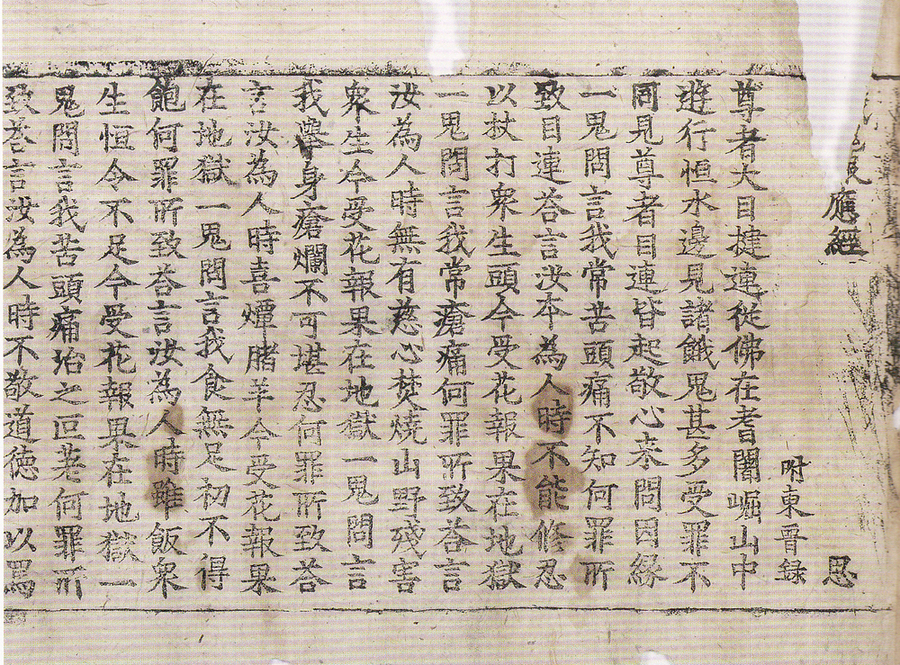 報應經 思
附東晉録
尊者大目揵連從佛在耆闍崛山中
遊行恒水邊見諸餓鬼甚多受罪不
同見尊者目連皆起敬心来問因縁
一鬼問言我常苦頭痛不知何罪所
致目連荅言汝本為人時不能修忍
以杖打衆生頭今受花報果在地獄
一鬼問言我常瘡痛何罪所致荅言
汝為人時無有慈心焚燒山野殘害
衆生今受花報果在地獄一鬼問言
我舉身瘡爛不可堪忍何罪所致荅
言汝為人時喜燂猪羊今受花報果
在地獄一鬼問言我食無足初不得
飽何罪所致荅言汝為人時雖飯衆
生恒令不足今受花報果在地獄一
鬼問言我苦頭痛治之叵差何罪所
致荅言汝為人時不敬道德加以罵